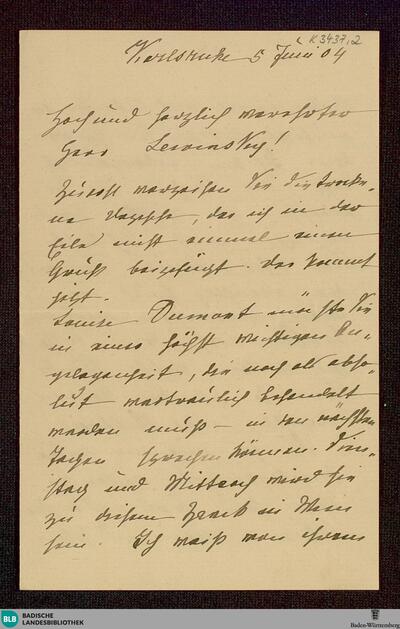 K 3437,2
Karlsruhe 5 Juni 04
Hoch und herzlich verehrter
Herr Lewinsky!
Zuerst verzeihen Sie die trocke-
ne Depesche, das ich in der
Eile nicht einmal einen
Gruß beigefügt. Das kommt
jetzt.
Louise Dumont möchte Sie
in einer höchst wichtigen An-
gelegenheit, die noch als abso-
lut vertraulich behandelt
werden muß – in den nächsten
Tagen sprechen können. Dien-
stag und Mittwoch wird sie
zu diesem Zweck in Wien
sein. Ich weiß von ihrem
BLB BADISCHE
LANDESBIBLIOTHEK
Baden-Württemberg